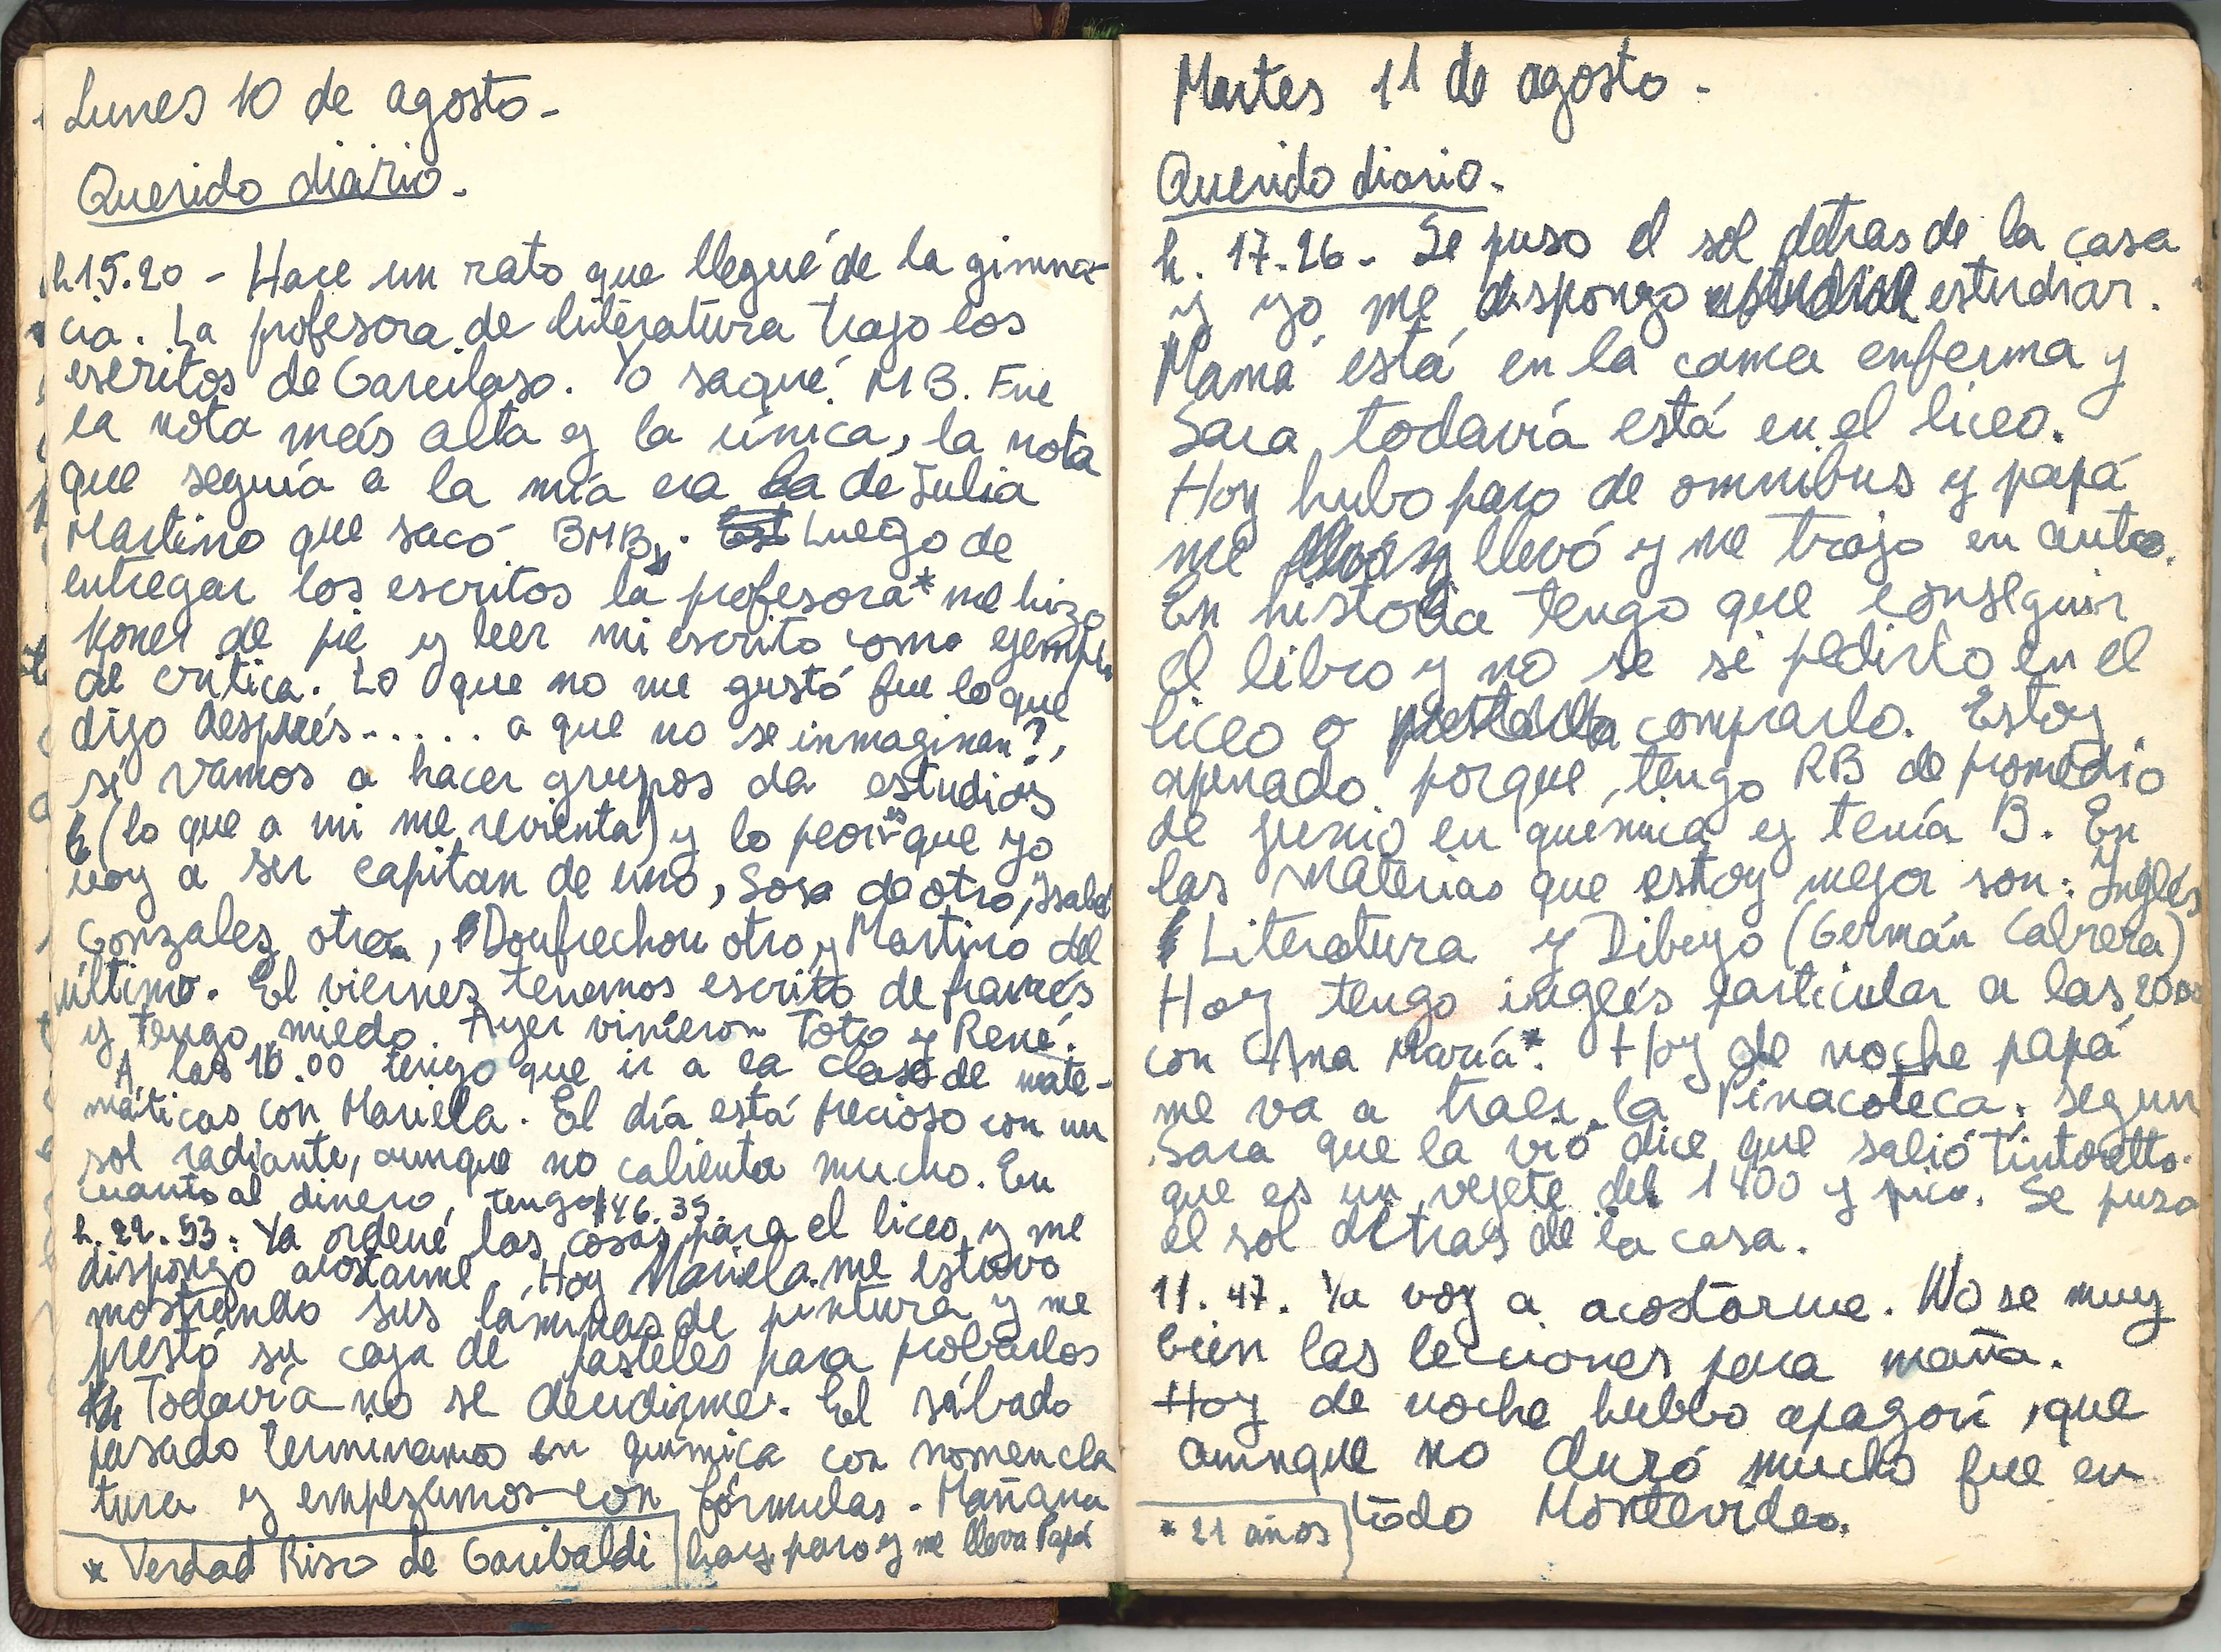 Lunes 10 de agosto -
Querido diario -
h 15.20 - Hace un rato que llegué de la gimna-
cia. La profesora de literatura trajo los
escritos de Garcilaso. Yo saqué MB. Fue
la nota más alta y la única, la nota
que seguía a la mía era de Julia
Martino que sacó BMB. Luego de
entregar los escritos la profesora* me hizo
poner de pie y leer mi escrito como ejemplo
de crítica. Lo que no me gustó fue lo que
dijo después..... a que no se inmaginan?,
si vamos a hacer grupos de estudios
(lo que a mi me revienta) y lo peor es que yo
voy a ser capitan de uno, Sosa de otro, Ysabel
Gonzalez otra, Doufrechou otro y Martino del
último. El viernes tenemos escrito de francés
y tengo miedo. Ayer vinieron Toto y René.
A las 16.00 tengo que ir a la clase de mate-
máticas con Mariela. El día está precioso con un
sol radiante, aunque no calienta mucho. En
cuanto al dinero, tengo $46.35
h. 22.53. Ya ordené las cosas para el liceo y me
dispongo acostarme. Hoy Mariela me estuvo
mostrando sus láminas de pintura y me
prestó su caja de pasteles para probarlos
Todavía no se decidirme. El sábado
pasado terminamos en química con nomencla
tura y empezamos con fórmulas - Mañana
hay paro y me lleva Papá
* Verdad Riso de Garibaldi
Martes 11 de agosto -
Querido diario -
h. 17.26 - Se puso el sol detras de la casa
y yo me dispongo estudiar.
Mamá está en la cama enferma y
Sara todavía está en el liceo.
Hoy hubo paro de omnibus y papá
me llevó y me trajo en auto.
En historia tengo que conseguir
el libro y no se si pedirlo en el
liceo o comprarlo. Estoy
apenado porque tengo RB de promedio
de junio en química y tenía B. En
las materias que estoy mejor son: Ynglés
Literatura y Dibujo (Germán Cabrera)
Hoy tengo inglés particular a las 20.00
con Ana María*. Hoy de noche papá
me va a traer la Pinacoteca; segun
Sara que la vió dice que salió Tintoretto
que es un vejete del 1400 y pico. Se puso
el sol detras de la casa.
11.47. Ya voy a acostarme. No se muy
bien las lecciones para maña.
Hoy de noche hubbo apagón, que
aunque no duró mucho fue en
todo Montevideo.
* 21 años